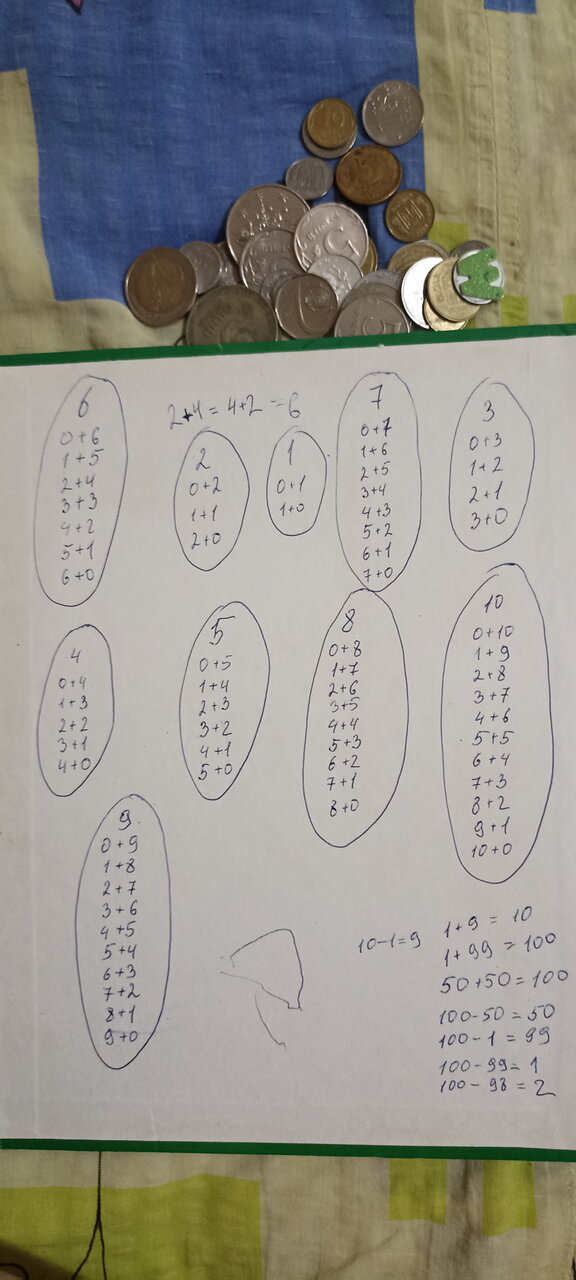 2+4=4+2=6
6
0+6
1+5
2+4
3+3
4+2
5+1
6+0
2
0+2
1+1
2+0
1
0+1
1+0
7
0+7
1+6
2+5
3+4
4+3
5+2
6+1
7+0
3
0+3
1+2
2+1
3+0
4
0+4
1+3
2+2
3+1
4+0
5
0+5
1+4
2+3
3+2
4+1
5+0
8
0+8
1+7
2+6
3+5
4+4
5+3
6+2
7+1
8+0
10
0+10
1+9
2+8
3+7
4+6
5+5
6+4
7+3
8+2
9+1
10+0
9
0+9
1+8
2+7
3+6
4+5
5+4
6+3
7+2
8+1
9+0
10-1=9
1+9=10
1+99=100
50+50=100
100-50=50
100-1=99
100-99=1
100-98=2